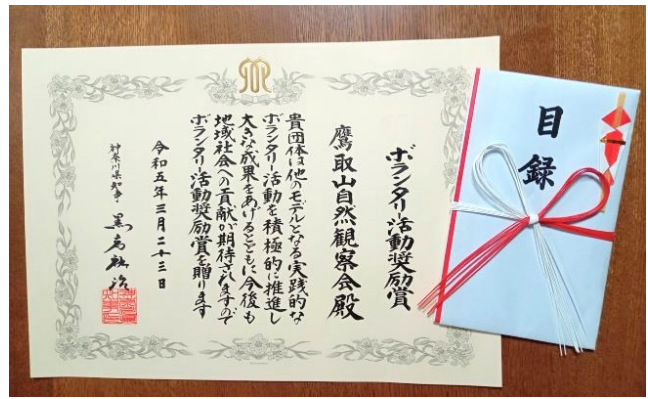 ボランタリー活動奨励賞
鷹取山自然観察会殿
貴団体は他のモデルとなる実践的な
ボランタリー活動を積極的に推進し
大きな成果をあげるとともに今後も
地域社会への貢献が期待されますので
ボランタリー活動奨励賞を贈ります
令和五年三月二十三日
神奈川県知事 黒岩祐治
目録